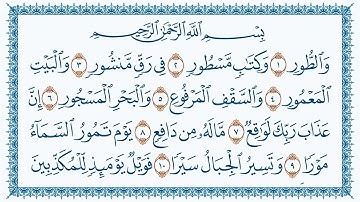 بِسْمِ ٱللَّهِ ٱلرَّحْمَٰنِ ٱلرَّحِيمِ
وَٱلطُّورِ ١ وَكِتَٰبٍ مَّسْطُورٍ ٢ فِى رَقٍّ مَّنشُورٍ ٣ وَٱلْبَيْتِ
ٱلْمَعْمُورِ ٤ وَٱلسَّقْفِ ٱلْمَرْفُوعِ ٥ وَٱلْبَحْرِ ٱلْمَسْجُورِ ٦ إِنَّ
عَذَابَ رَبِّكَ لَوَٰقِعٌ ٧ مَّا لَهُۥ مِن دَافِعٍ ٨ يَوْمَ تَمُورُ ٱلسَّمَآءُ
مَوْرًا ٩ وَتَسِيرُ ٱلْجِبَالُ سَيْرًا ١٠ فَوَيْلٌ يَوْمَئِذٍ لِّلْمُكَذِّبِينَ